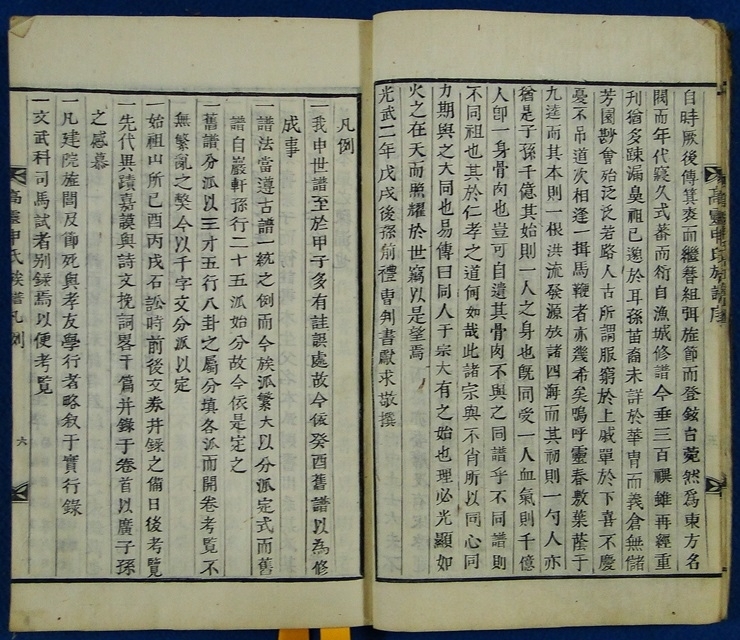 自時厥後傳箕裘而繼簪組弭旌節而登鉉台菀然爲東方名
閥而年代寢久式蕃而衍自漁城修譜今垂三百禩雖再經重
刊猶多踈漏臭祖已邈於耳孫苗裔未詳於華胄而義倉無儲
芳園尠會殆泛泛若路人古所謂服窮於上戚單於下喜不慶
憂不吊道次相逢一揖馬鞭者亦幾希矣嗚呼靈春數葉蔭于
九逵而其本則一根洪流發源放諸四海而其初則一勺人亦
猶是子孫千億其始則一人之身也旣同受一人血氣則千億
人卽一身骨肉也豈可自遺其骨肉不與之同譜乎不同譜則
不同祖也其於仁孝之道何如哉此諸宗與不肖所以同心同
力期與之大同也易傳曰同人于宗大有之始也理必光顯如
火之在天而照耀於世竊以是望焉
光武二年戊戌後孫前禮曹判書獻求敬撰
高靈申氏族譜序
凡例
一我申世譜至於甲子多有註誤處故今依癸酉舊譜以為修
成事
一譜法當遵古譜一統之例而今族派繁大以分派定式而舊
譜自巖軒孫行二十五派始分故今依是定之
一舊譜分派以三才五行八卦之屬分塡各派而開卷考覧不
無繁亂之獘今以千字文分派以定
一始祖山所己酉丙戌石訟時前後文券幷錄之備日後考覽
一先代異蹟嘉謨與詩文挽詞畧干篇幷錄于卷首以廣子孫
之感慕
一凡建院旌閭及節死與孝友學行者略叙于實行錄
一文武科司馬試者別錄焉以便考覧
高靈申氏族譜凡例
六